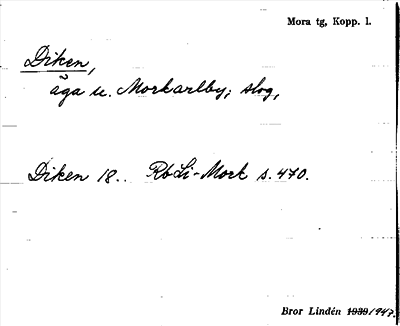 Mora tg, Kopp. l.
Diken,
äga u. Morkarlby; slog,
Diken 18.. RbLi-Mork s. 470.
Bror Lindén 1939/1947.